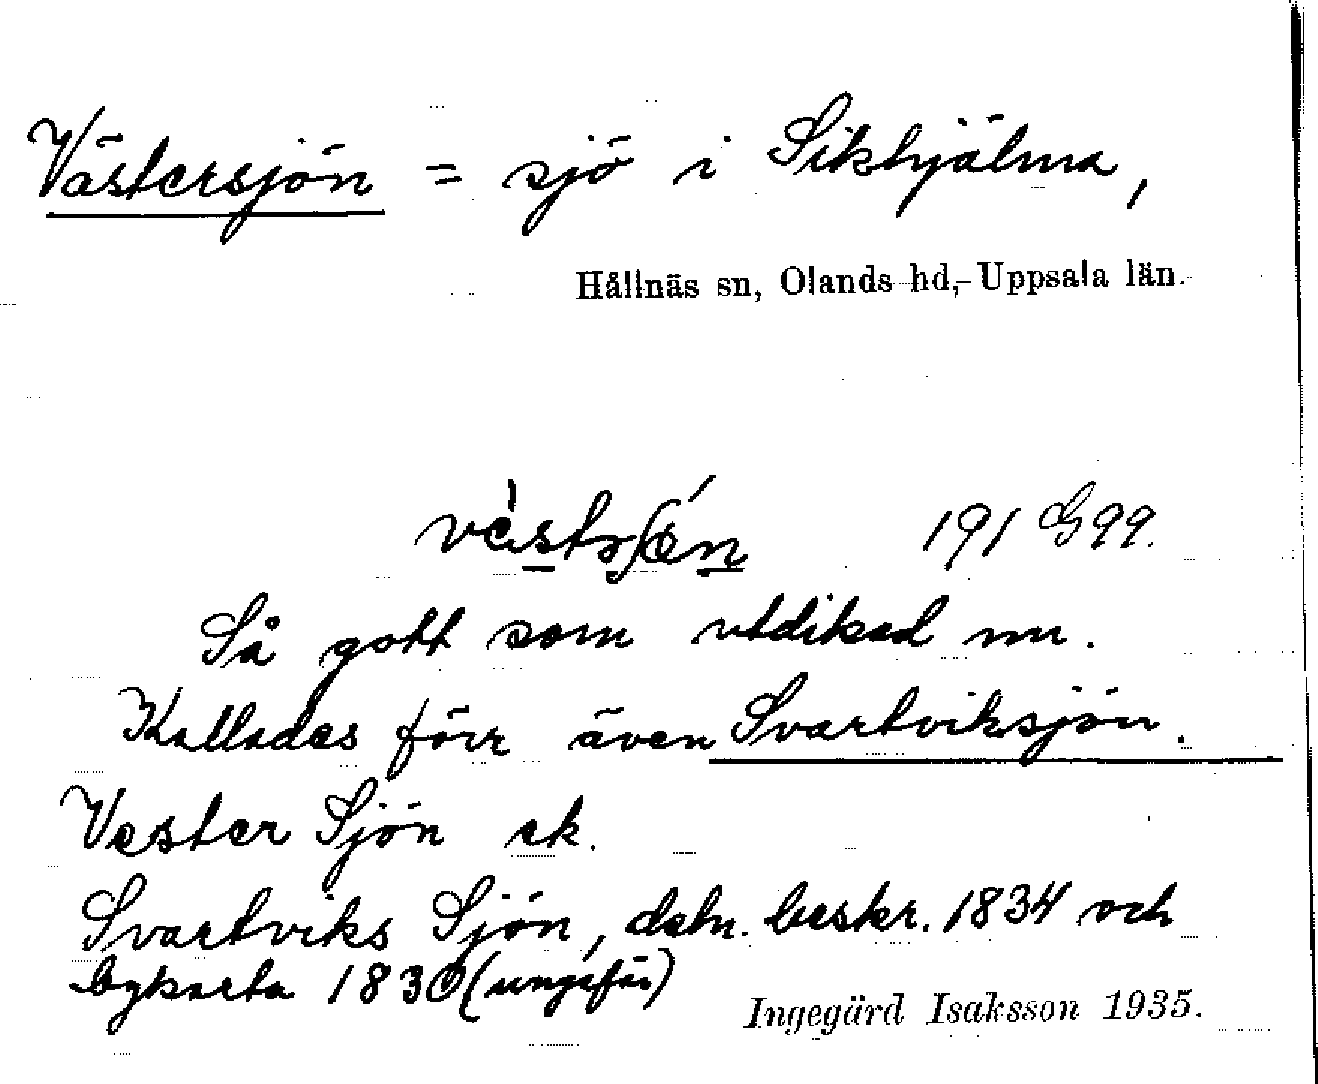 Västersjön = sjö i Sikhjälma,
Hållnäs sn, Olands hd, Uppsala län.
191 G 99.
Så gott som utdikad nu.
Kallades förr även Svartviksjön.
Vester Sjön ek.
Svartviks Sjön, detn. beskr. 1834 och
bykarta 1830 (ungefär)
Ingegärd Isaksson 1935.